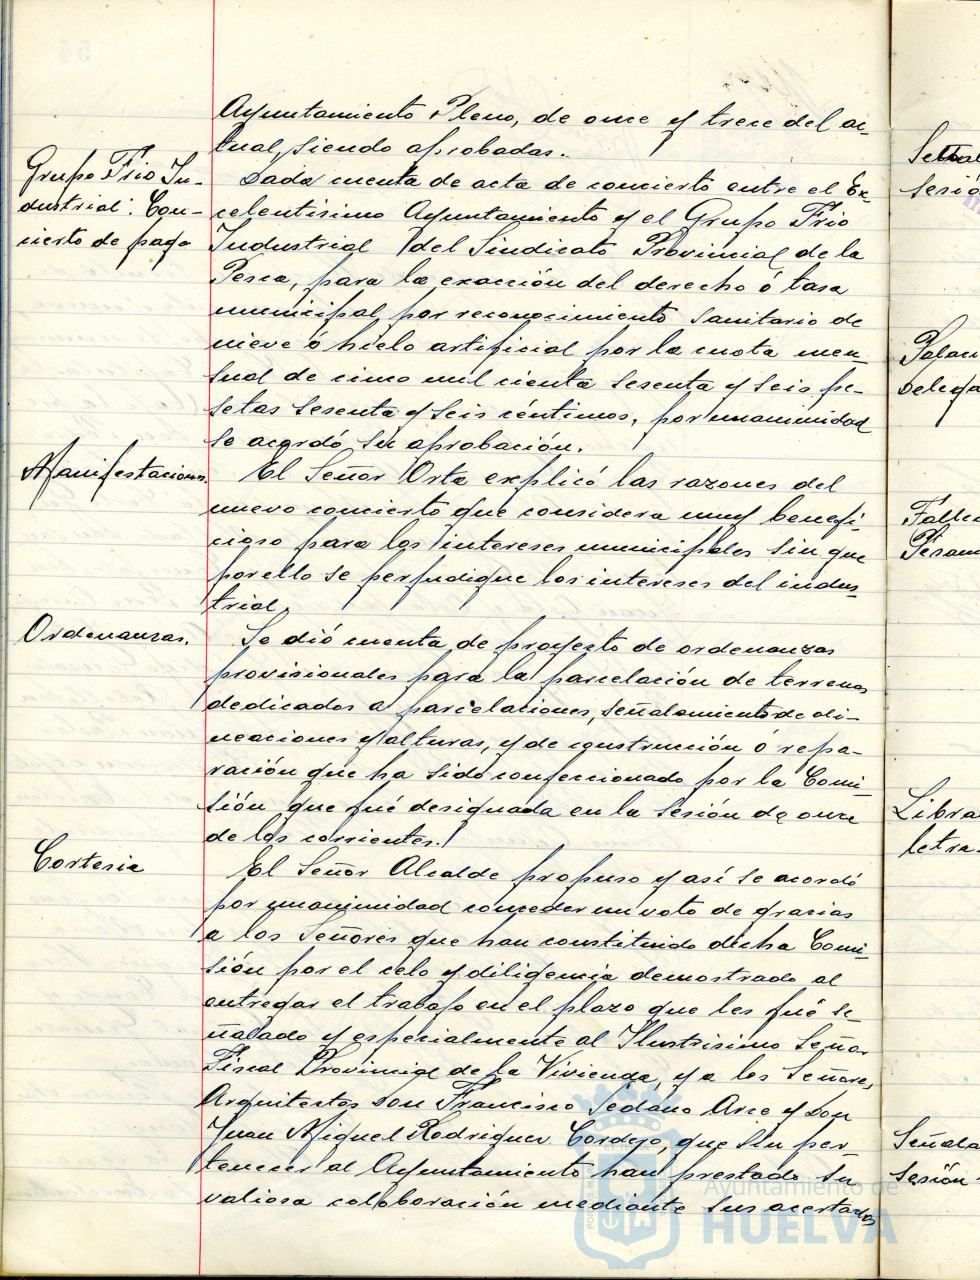 Ayuntamiento Pleno, de once y trece del ac-
tual, siendo aprobadas.
Grupo Frio In-
dustrial: Con-
cierto de pago
Dada cuenta de acta de concierto entre el Ex-
celentísimo Ayuntamiento y el Grupo Frio
Industrial del Sindicato Provincial de la
Pesca, para la exacción del derecho ó tasa
municipal por reconocimiento sanitario de
nieve ó hielo artificial por la cuota men-
sual de cinco mil cienta sesenta y seis pe-
setas sesenta y seis céntimos, por unanimidad
se acordó su aprobación.
Manifestaciones.
El Señor Orta explicó las razones del
nuevo concierto que considera muy benefi-
cioso para los intereses municipales sin que
por ello se perjudique los intereses del indus-
trial.
Ordenanzas.
Se dió cuenta de proyecto de ordenanzas
provisionales para la parcelación de terrenos
dedicados a parcelaciones, señalamientos de di-
neaciones y alturas, y de construcción ó repa-
ración que ha sido confeccionado por la Comi-
sión que fué designada en la sesión de once
de los corrientes.
Cortesia
El Señor Alcalde propuso y así se acordó
por unanimidad conceder un voto de gracias
a los Señores que han constituido dicha Comi-
sión por el celo y diligencia demostrado al
entregar el trabajo en el plazo que les fué se-
ñalado y especialmente al Ilustrisimo Señor
Fiscal Provincial de la Vivienda, y a los Señores
Arquitectos Don Francisco Sedano Arce y Don
Juan Miguel Rodriguez Cordejo, que sin per-
tenecer al Ayuntamiento han prestado su
valiosa colaboración mediante sus acertados
sesió
Palaci
Delega
Falle
Pésam
Libra
letra
Señala
sesión
Ayuntamiento de
HUELVA